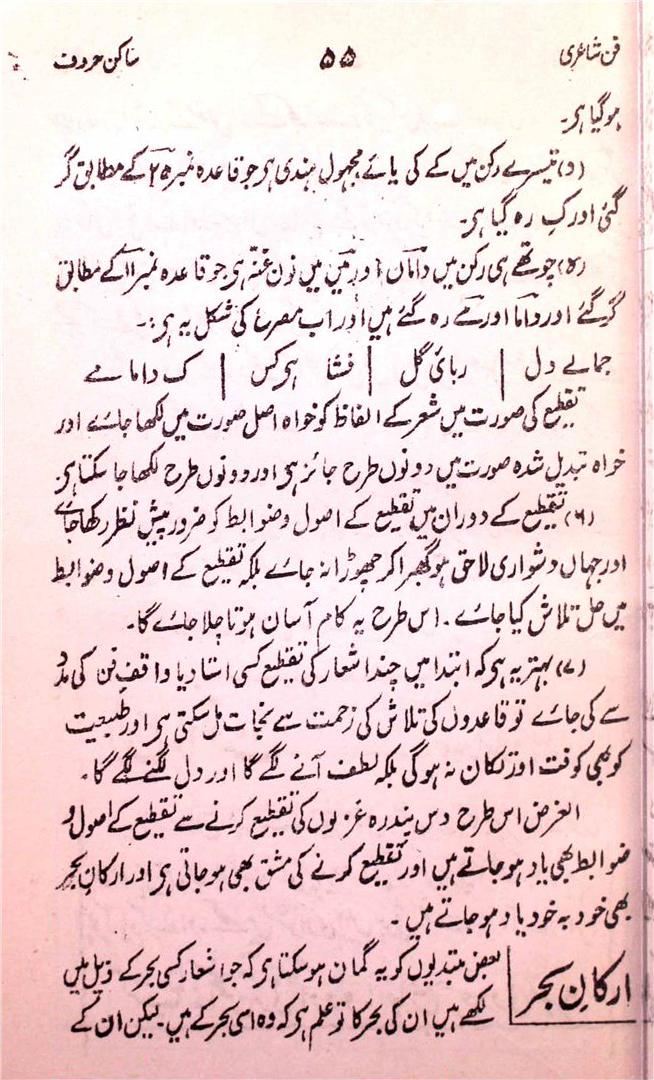 فن شاعری ۵۵ ساکن حروف
ہوگیا ہر۔
(د) تیسرے رکن میں کے کی یائے مجہول ہندی ہر جو قاعدہ نمبر ۲۵ کے مطابق گر
گئی اور کِ رہ گیا ہر۔
(ہ) چوتھے ہی رکن میں داماں اور میں میں نون غنّہ ہر جو قاعدہ نمبر ۱۱ کے مطابق
گر گئے اور داما اور مے رہ گئے ہیں اور اب مصرع کی شکل یہ ہر:۔
جمالے دل | ربائ گل | فشا ہر کس | ک داما مے
تقطیع کی صورت میں شعر کے الفاظ کو خواہ اصل صورت میں لکھا جائے اور
خواہ تبدیل شدہ صورت میں دونوں طرح جائز ہر اور دونوں طرح لکھا جا سکتا ہر۔
(۶) تقطیع کے دوران میں تقطیع کے اصول و ضوابط کو ضرور پیش نظر رکھا جائے
اور جہاں دشواری لاحق ہو گھبرا کر چھوڑا نہ جائے بلکہ تقطیع کے اصول و ضوابط
میں حل تلاش کیا جائے۔ اس طرح یہ کام آسان ہوتا چلا جائے گا۔
(۷) بہتر یہ ہر کہ ابتدا میں چند اشعار کی تقطیع کسی استاد یا واقفِ فن کی مدد
سے کی جائے تو قاعدوں کی تلاش کی زحمت سے نجات مل سکتی ہر اور طبیعت
کو بھی کوفت اور تکان نہ ہوگی بلکہ لطف آنے لگے گا اور دل لگنے لگے گا۔
الغرض اس طرح دس پندرہ غزلوں کی تقطیع کرنے سے تقطیع کے اصول و
ضوابط بھی یاد ہو جاتے ہیں اور تقطیع کرنے کی مشق بھی ہو جاتی ہر اور ارکانِ بحر
بھی خود بہ خود یاد ہو جاتے ہیں۔
ارکانِ بحر
بعض مبتدیوں کو یہ گمان ہو سکتا ہر کہ جو اشعار کسی بحر کے ذیل میں
لکھے ہیں ان کی بحر کا تو علم ہر کہ وہ اسی بحر کے ہیں۔ لیکن ان کے